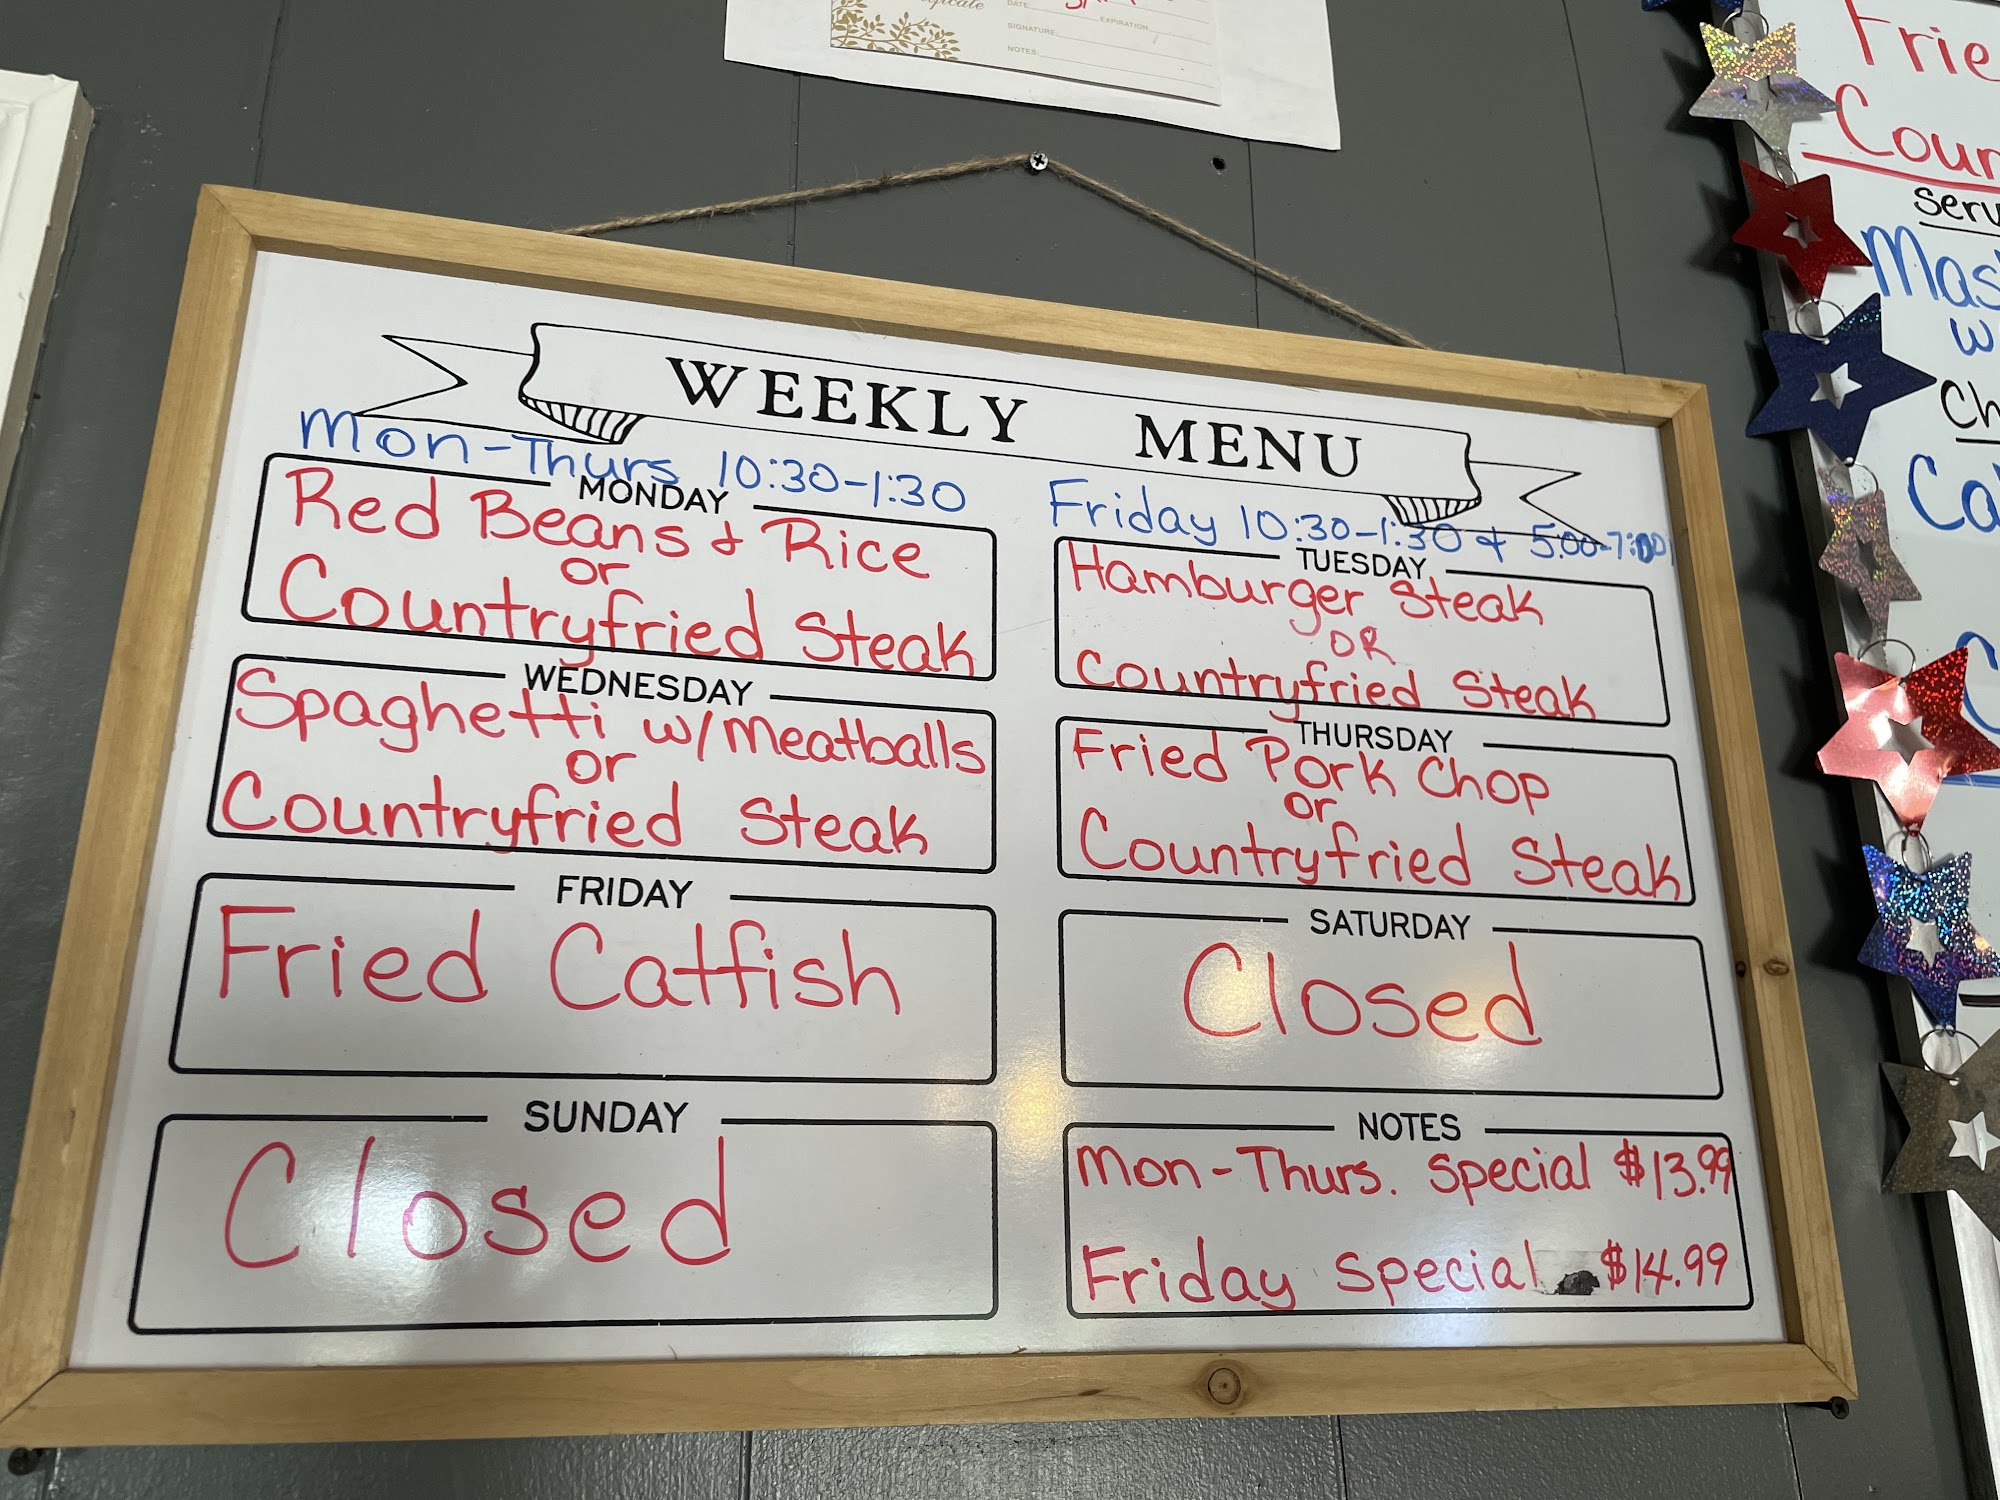 DATE
EXPIRATION
SIGNATURE
NOTES
WEEKLY MENU
Mon-Thurs 10:30-1:30
Friday 10:30-1:30 & 5:00-7:00
MONDAY
Red Beans & Rice
or
Countryfried Steak
TUESDAY
Hamburger Steak
OR
Countryfried Steak
WEDNESDAY
Spaghetti w/Meatballs
or
Countryfried Steak
THURSDAY
Fried Pork Chop
or
Countryfried Steak
FRIDAY
Fried Catfish
SATURDAY
Closed
SUNDAY
Closed
NOTES
Mon-Thurs. Special $13.99
Friday Special $14.99